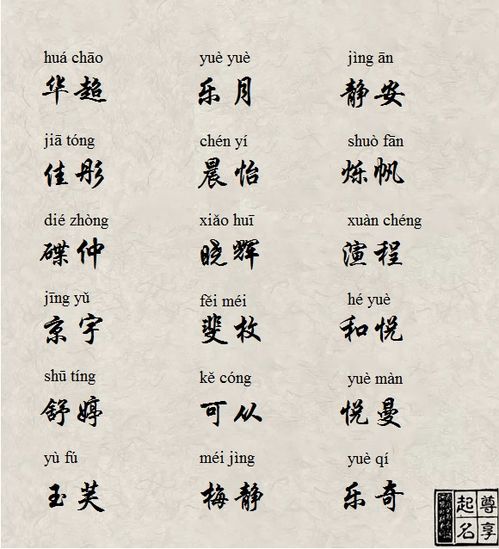 huá chāo yuè yuè jìng ān
华超 乐月 静安
jiā tóng chén yí shuò fān
佳彤 晨怡 烁帆
dié zhòng xiǎo huī xuàn chéng
碟仲 晓辉 演程
jīng yǔ fěi méi hé yuè
京宇 斐枚 和悦
shū tíng kě cóng yuè màn
舒婷 可从 悦曼
yù fú méi jìng yuè qí
玉芙 梅静 乐奇
尊享
起名